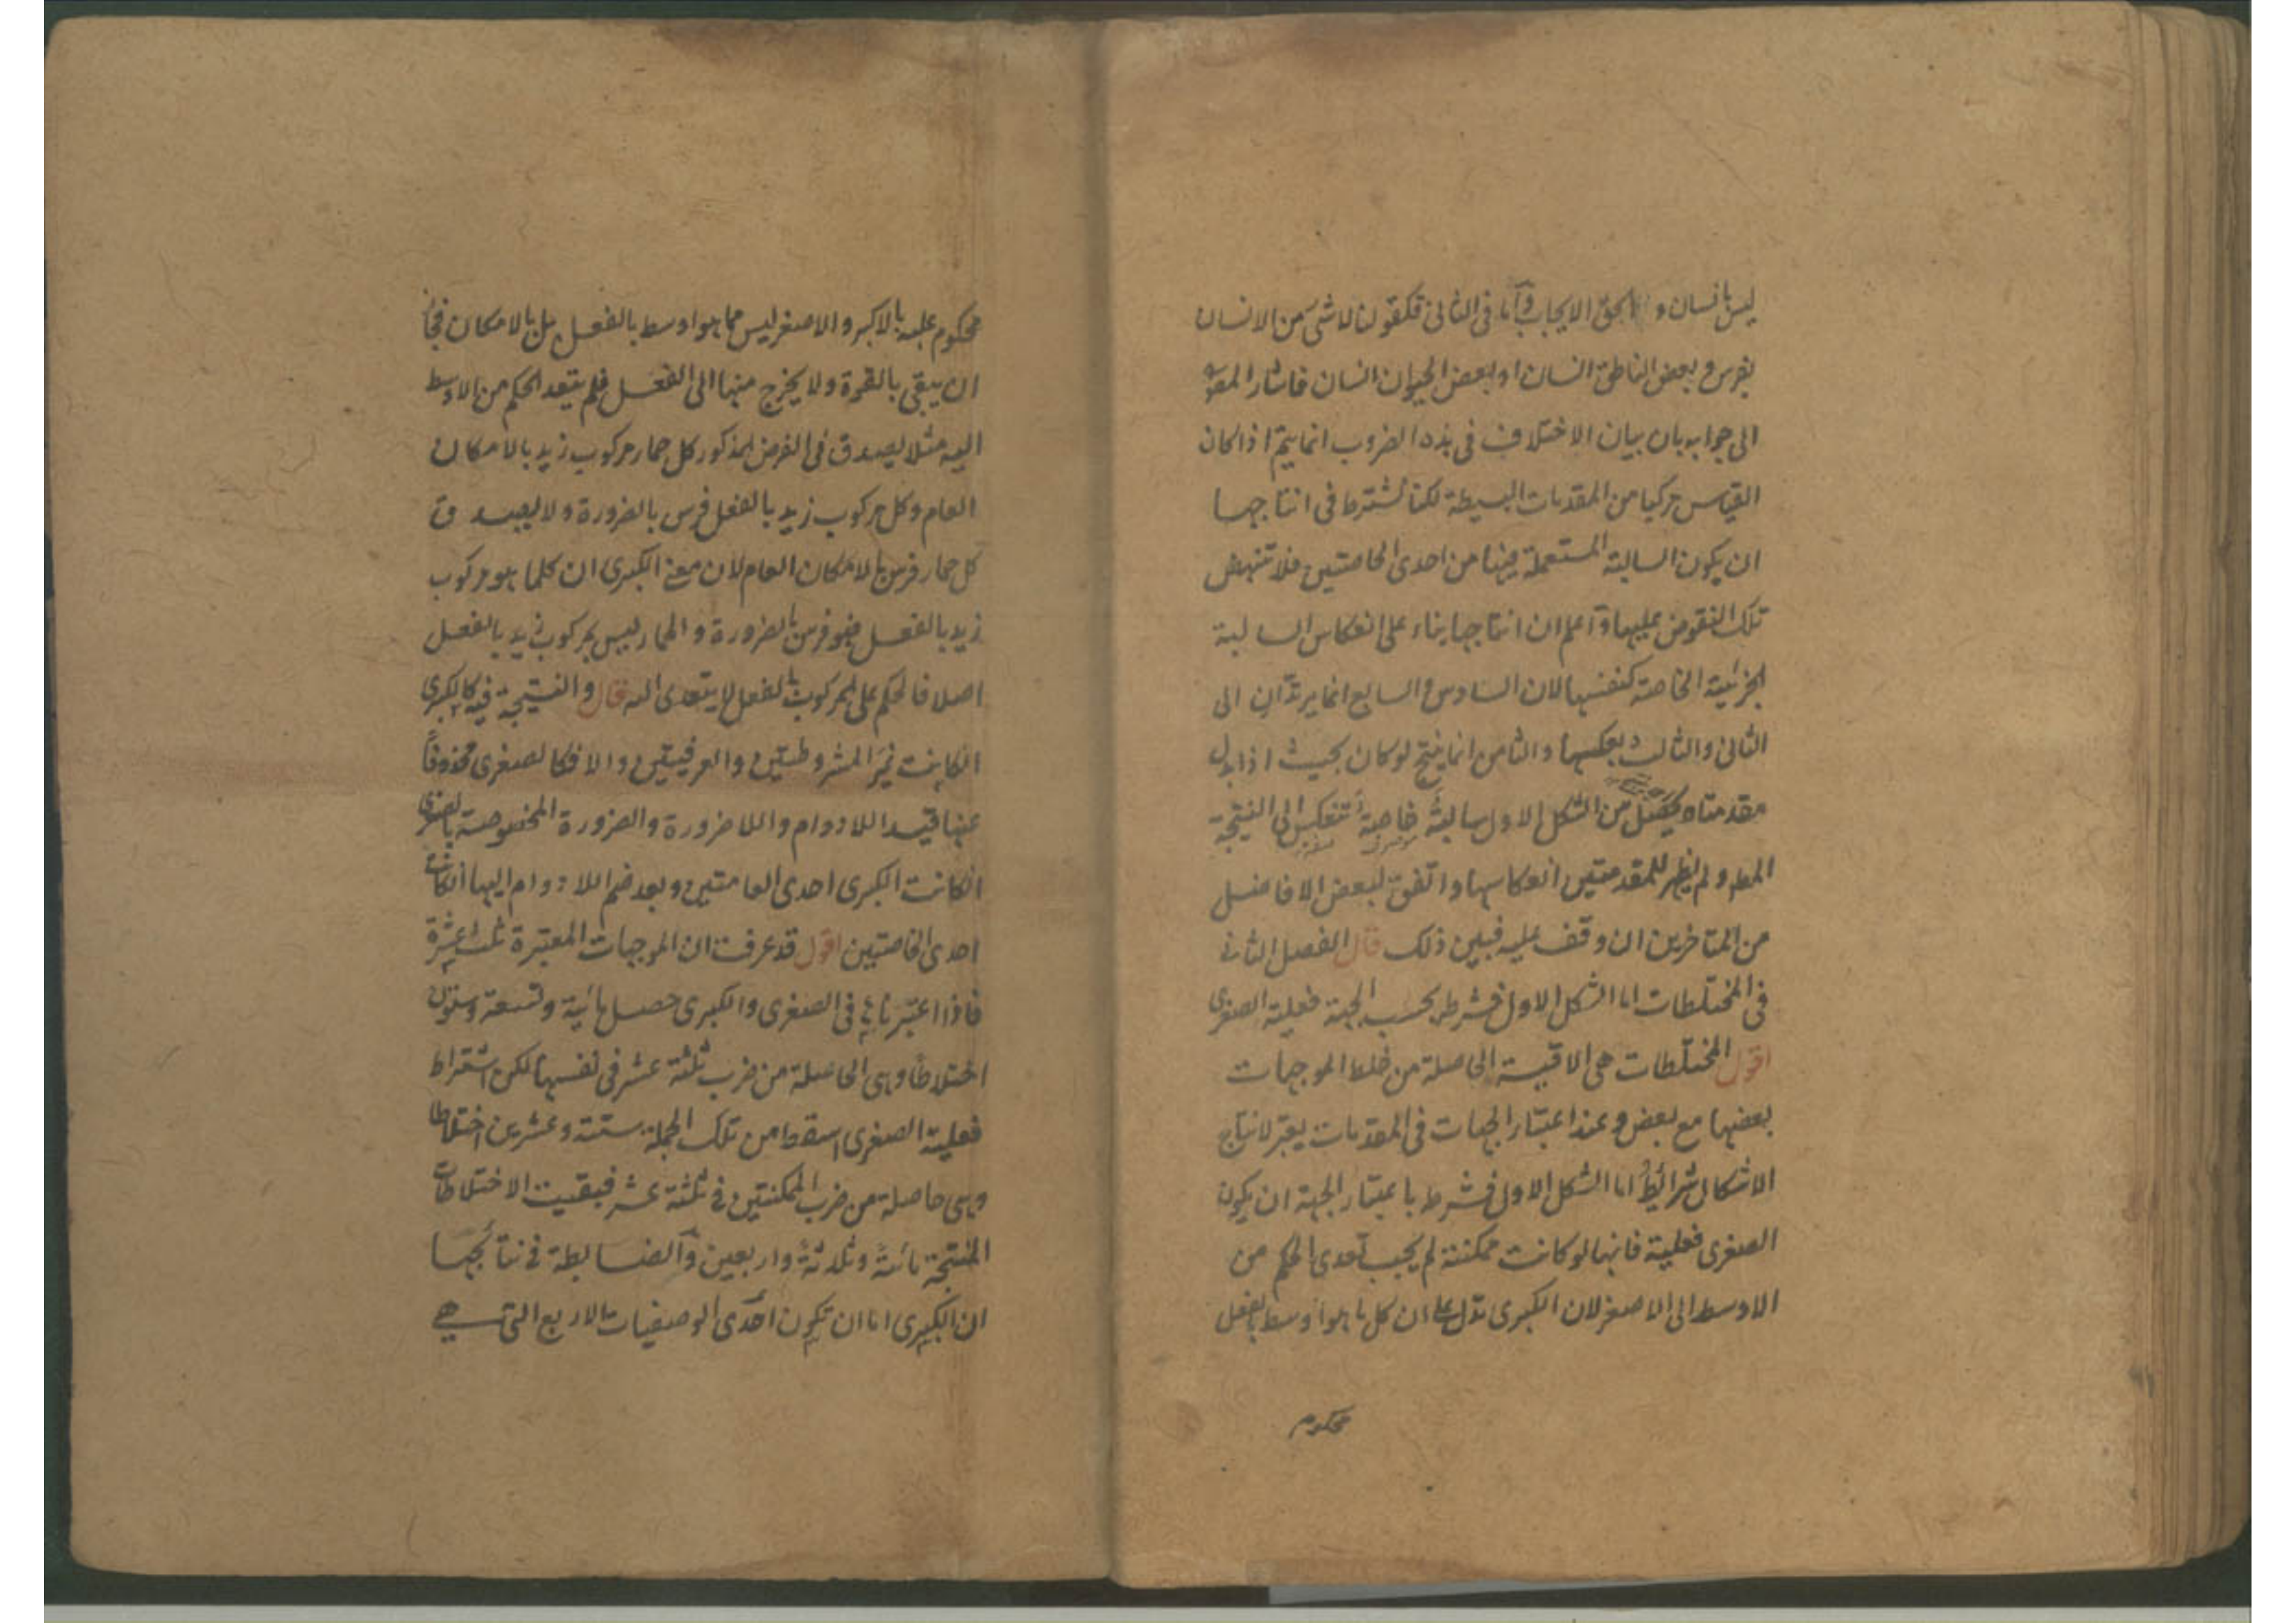 ليس بانسان و الحق الايجاب وآما فى الثانى فكقولنا لا شئ من الانسان
بفرس و بعض الناطق انسان او بعض الحيوان انسان فاشار المصه
الى جوابه بان بيان الاختلاف فى هذه الضروب انما يتم اذا كان
القياس مركبا من المقدمات البسيطة لكنا نشترط فى انتاجها
ان يكون السالبة المستعملة فيها من احدى الخاصتين فلا تنهض
تلك النقوض عليها وآعلم ان انتاجها بناء على انعكاس السالبة
الجزئية الخاصة كنفسها لان السادس و السابع انما يرتدان الى
الثانى والثالث بعكسها والثامن انما ينتج لو كان بحيث اذا بدل
مقدمتاه يحصل من الشكل الاول سالبة خاصة تنعكس الى النتيجة
المط و لم يظهر للمقدمتين انعكاسها واتفق لبعض الافاضل
من المتاخرين ان وقف عليه فبين ذلك قال الفصل الثانى
فى المختلطات اما الشكل الاول فشرطه بحسب الجهة فعلية الصغرى
اقول المختلطات هى الاقيسة الحاصلة من خلط الموجهات
بعضها مع بعض وعند اعتبار الجهات فى المقدمات يعتبر لانتاج
الاشكال شرائط اما الشكل الاول فشرطه باعتبار الجهة ان يكون
الصغرى فعلية فانها لو كانت ممكنة لم يجب تعدى الحكم من
الاوسط الى الاصغر لان الكبرى تدل على ان كل ما هو اوسط بالفعل
محكوم
محكوم عليه بالاكبر و الاصغر ليس مما هو اوسط بالفعل بل بالامكان فجاز
ان يبقى بالقوة ولا يخرج منها الى الفعل فلم يتعد الحكم من الاوسط
اليه مثلا يصدق فى الفرض المذكور كل حمار مركوب زيد بالامكان
العام وكل مركوب زيد بالفعل فرس بالضرورة ولا يصدق
كل حمار فرس بالامكان العام لان معنى الكبرى ان كلما هو مركوب
زيد بالفعل فهو فرس بالضرورة و الحمار ليس بمركوب زيد بالفعل
اصلا فالحكم على المركوب بالفعل لا يتعدى اليه قال والنتيجة فيه كالكبرى
انكانت غير المشروطتين والعرفيتين والا فكالصغرى محذوفا
عنها قيد اللادوام واللاضرورة والضرورة المخصوصة بالصغرى
انكانت الكبرى احدى العامتين وبعد ضم اللادوام اليها انكانت
احدى الخاصتين اقول قد عرفت ان الموجهات المعتبرة ثلث عشرة
فاذا اعتبرناها فى الصغرى والكبرى حصل مائة وتسعة وستون
اختلاطا وهى الحاصلة من ضرب ثلثة عشر فى نفسها لكن اشتراط
فعلية الصغرى اسقط من تلك الجملة ستة وعشرين اختلاطا
وهى حاصلة من ضرب الممكنتين فى ثلثة عشر فبقيت الاختلاطات
المنتجة مائة وثلاثة واربعين وآلضابطة فى نتائجها
ان الكبرى اما ان تكون احدى الوصفيات الاربع التى هى